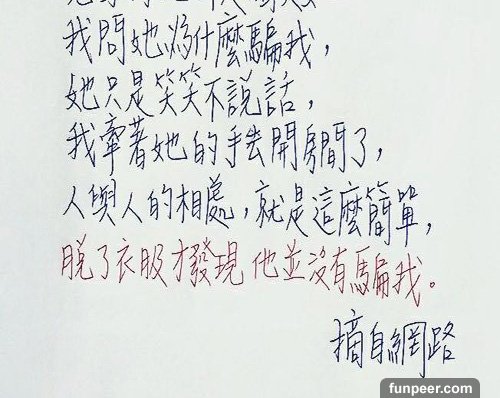 我問她為什麼騙我，
她只是笑笑不說話，
我牽著她的手去開房間了，
人與人的相處，就是這麼簡單，
脫了衣服才發現他並沒有騙我。
摘自網路
funpeer.com